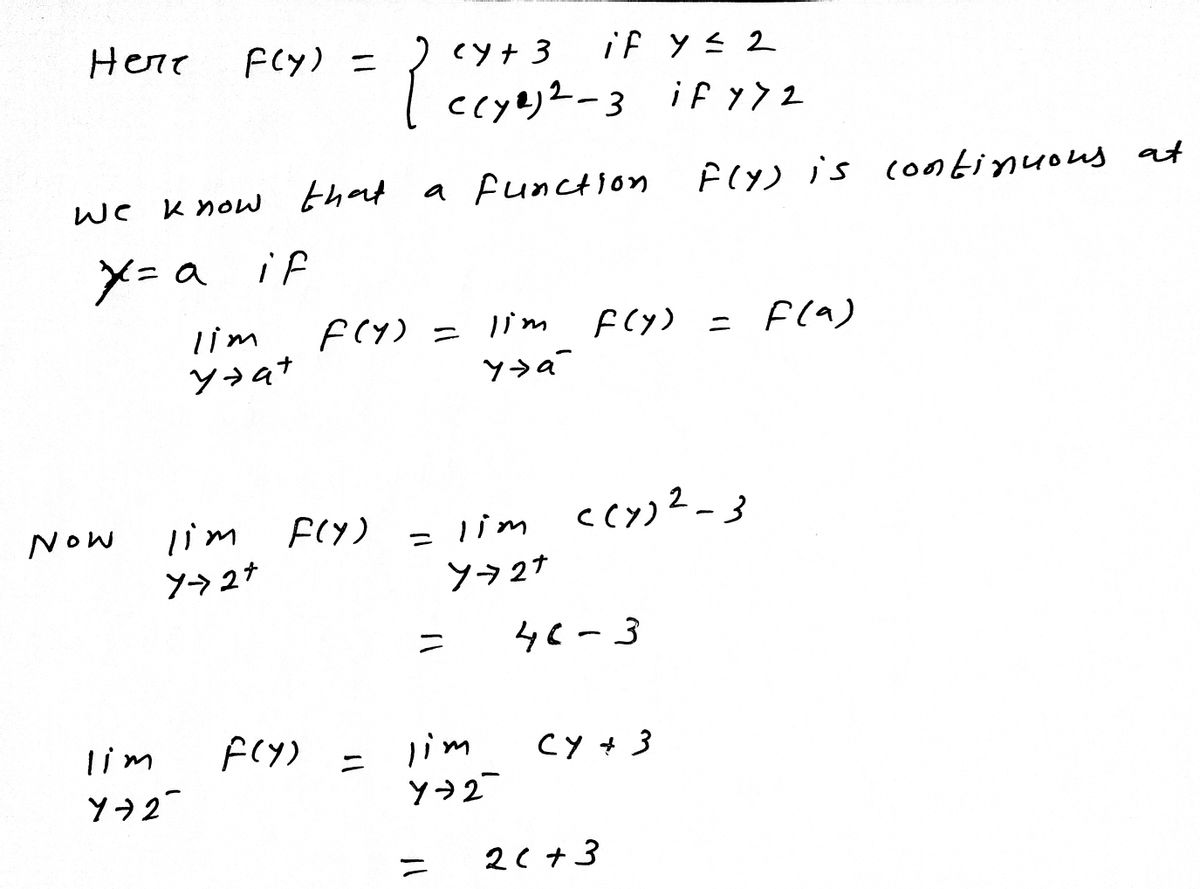 Here F(y) = { cy + 3 if y ≤ 2
c(y)² - 3 if y > 2
we know that a function F(y) is continuous at
y = a if
lim F(y) = lim F(y) = F(a)
y→a⁺ y→a⁻
Now lim F(y) = lim c(y)² - 3
y→2⁺ y→2⁺
= 4c - 3
lim F(y) = lim cy + 3
y→2⁻ y→2⁻
= 2c + 3